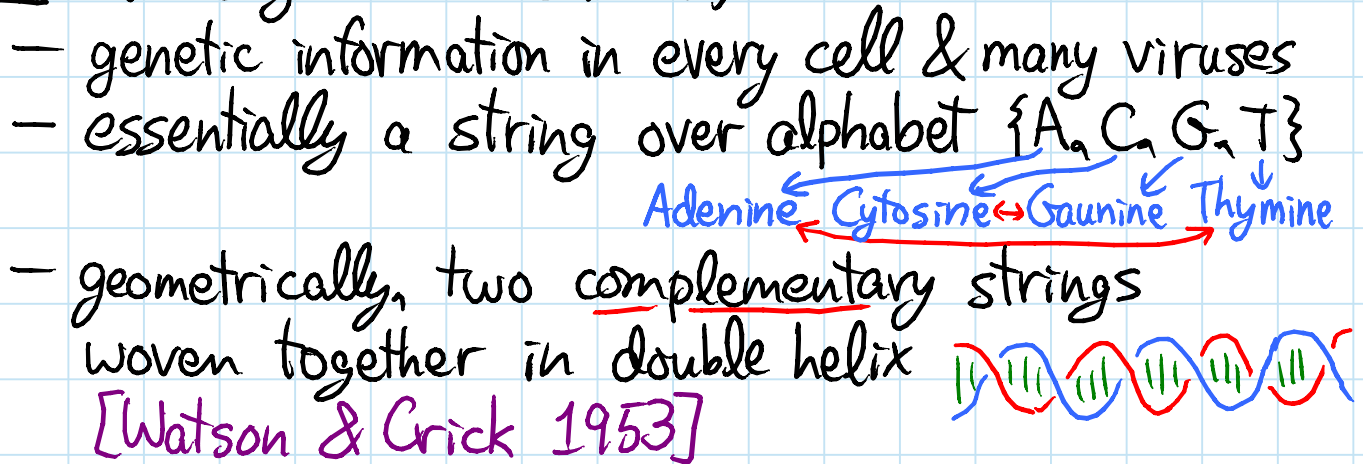 – genetic information in every cell & many viruses
– essentially a string over alphabet {A, C, G, T}
Adenine Cytosine ↔ Gaunine Thymine
– geometrically, two complementary strings
woven together in double helix
[Watson & Crick 1953]